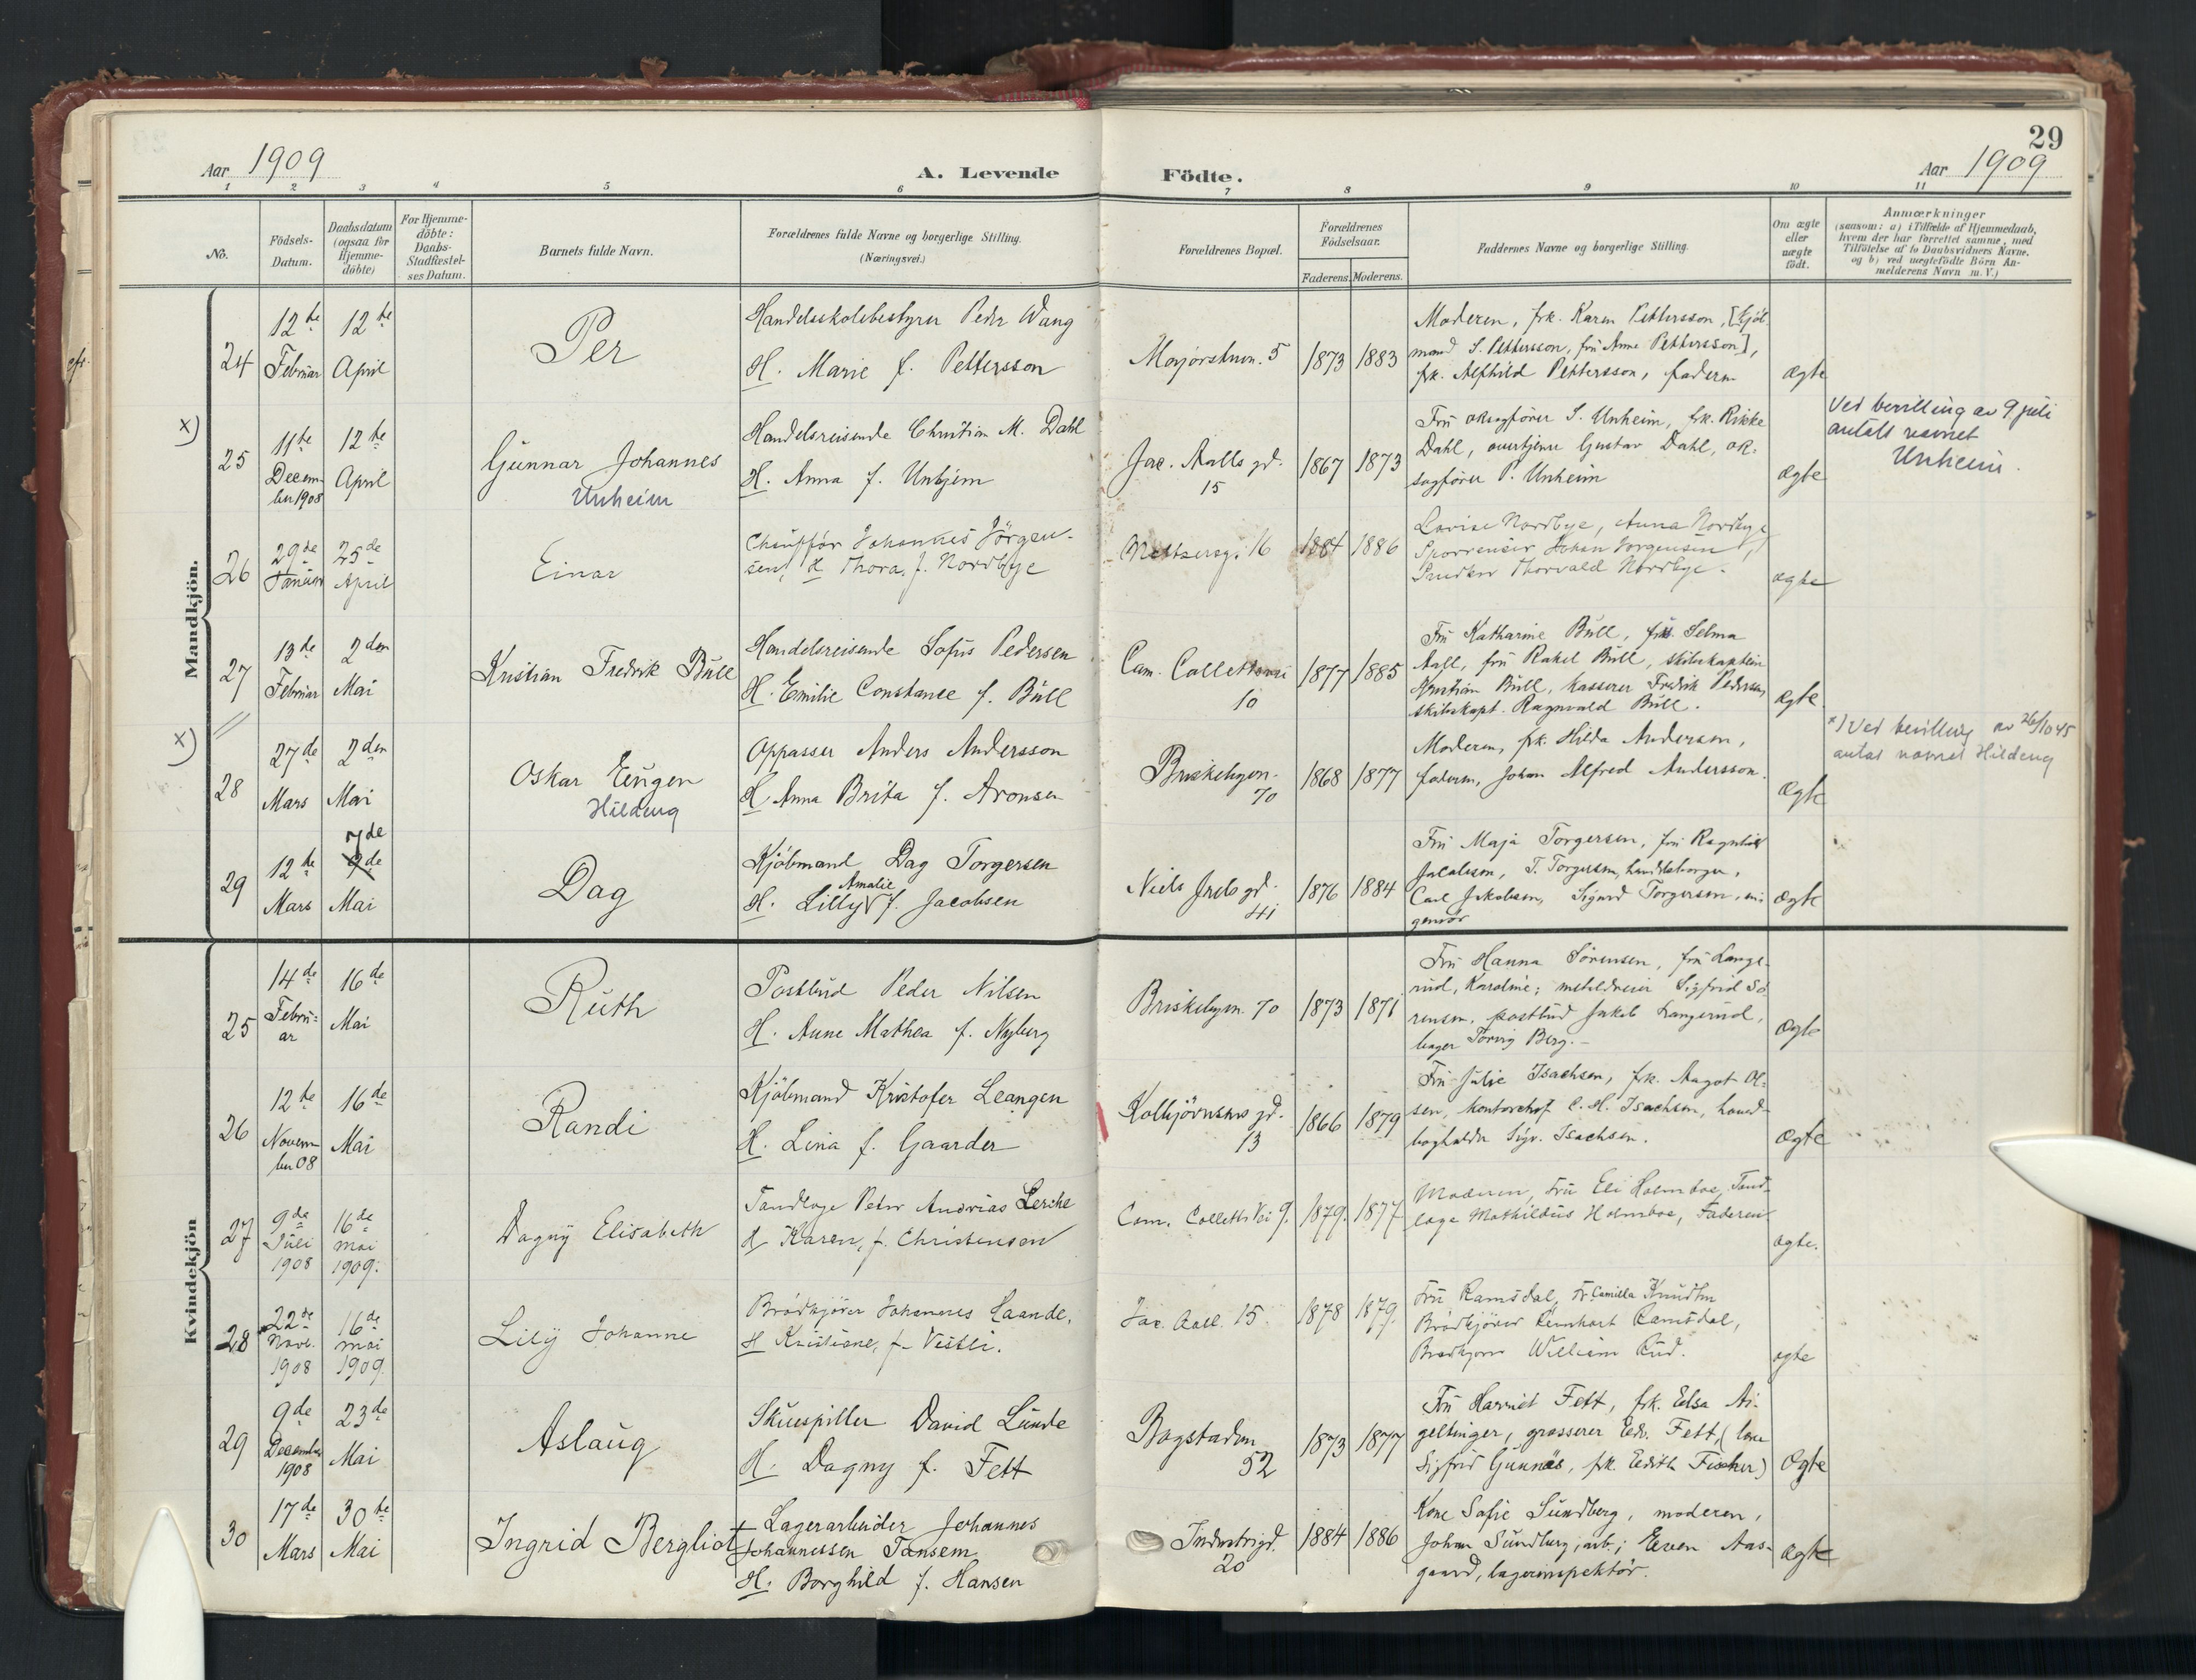 29
Aar 1909
A. Levende Födte.
Aar 1909
1 2 3 4 5 6 7 8 9 10 11
No.
Födsels-
Datum.
Daabsdatum
(ogsaa for
Hjemme-
döbte)
For Hjemme-
döbte:
Daabs-
Stadfæstel-
ses Datum.
Barnets fulde Navn.
Forældrenes fulde Navne og borgerlige Stilling.
(Næringsvei.)
Forældrenes Bopæl.
Forældrenes
Födselsaar.
Faderens. Moderens.
Faddernes Navne og borgerlige Stilling.
Om ægte
eller
uægte
födt.
Anmærkninger
(saasom: a) i Tilfælde af Hjemmedaab,
hvem der har forrettet samme, med
Tilföielse af to Daabsvidners Navne.
og b) ved uægtefödte Börn An-
melderens Navn m. V.)
Mandkjön.
24
12te
Februar
12te
April
Per
Handelsskolebestyrer Peder Wang
H. Marie f. Pettersson
Majorstuen. 5
1873 1883
Moderen, frk. Karen Pettersson, [kjöb
mand S. Pettersson, fru Anne Pettersson],
frk. Alfhild Pettersson, faderen
ægte
x)
25
11te
Decem-
ber 1908
12te
April
Gunnar Johannes
Unheim
Handelsreisende Christian M. Dahl
H. Anna f. Unhjem
Jac. Aalls gd.
15
1867 1873
Fru oksagförer S. Unheim, frk. Rikke
Dahl, overtjener Gustav Dahl, ok-
sagförer P. Unheim
ægte
Ved bevilling av 9 juli
antatt navnet
Unheim.
26
29de
Januar
25de
April
Einar
Chaufför Johannes Jörgen-
sen, H Thora, f. Nordbye
16
1884 1886
Lovise Nordbye, Anna Nordbye,
Johan Jorgensen,
Thorvald Nordbye.
ægte
27
13de
Februar
2den
Mai
Kristian Fredrik Bull
Handelsreisende Sofus Pedersen
H. Emilie Constance f. Bull
Cam. Collettsvei
10
1877 1885
Fru Katharine Bull, frk. Selma
Aall, fru Rakel Bull, skibskaptein
Kristian Bull, kasserer Fredrik Pedersen,
skibskapt. Ragnvald Bull.
ægte
x)
28
27de
Mars
2den
Mai
Oskar Eugen
Hildeng
Oppasser Anders Andersson
H. Anna Brita f. Aronsen
Briskebyvn.
70
1868 1877
Moderen, frk. Hilda Andersen,
faderen, Johan Alfred Andersson.
ægte
x) Ved bevilling av 26/10 45
antat navnet Hildeng
29
12te
Mars
7de
9de
Mai
Dag
Kjöbmand Dag Torgersen
Amalie
H. Lilly f. Jacobsen
Niels Juels gd.
41
1876 1884
Fru Maja Torgersen, fru Ragnhild
Jacobsen, T. Torgersen, handelsborger,
Carl Jakobsen, Sigurd Torgersen, in-
geniör
ægte
Kvindekjön
25
14de
Febru-
ar
16de
Mai
Ruth
Postbud Peder Nilsen
H. Anne Mathea f. Nyberg
Briskebyvn. 70
1873 1871
Fru Hanna Sörensen, fru Lange-
rud, Karoline; metaldreier Sigfrid Sö-
rensen, postbud Jakob Langerud,
bager Torvig Berg.
ægte
26
12te
Novem
ber 08
16de
Mai
Randi
Kjöbmand Kristofer Leangen
H. Lina f. Gaarder
Kolbjörnsens gd.
13
1866 1879
Fru Julie Isachsen, frk. Aagot Ol-
sen, kontorchef C. H. Isachsen, hoved-
bogholder Sigv. Isachsen.
ægte
27
9de
Juli
1908
16de
Mai
1909.
Dagny Elisabeth
Tandlæge Peter Andrias Lerche
H Karen, f. Christensen
Cam. Colletts Vei 9.
1879. 1877
Moderen, Fru Eli Holmboe, Tand-
læge Mathildus Holmboe, Faderen.
ægte.
28
22de
Novb.
1908
16de
mai
1909.
Lily Johanne
Brödkjörer Johannes Haande,
H Kristiane, f. Vestli.
Jac. Aall. 15.
1878 1879.
Fru Ramsdal, Fr. Camilla Knudten
Brödkjörer Reinhart Ramsdal,
Brödkjörer William Rud.
ægte
29
9de
December
1908
23de
Mai
Aslaug
Skuespiller David Lunde
H. Dagny f. Fett
Bogstadvn
52
1873 1877
Fru Harriet Fett, frk. Elsa Ai-
geltinger, grosserer Edv. Fett,
Sigfrid Gunnäs, frk. Edith Fischer)
ægte
30
17de
Mars
30te
Mai
Ingrid Bergliot
Lagerarbeider Johannes
Johannessen Tansem
H. Borghild f. Hansen
Industrigd.
20
1884 1886
Kone Sofie Sundberg, moderen,
Johan Sundberg, arb.; Even Aas-
gaard, lagerinspektör.
ægte